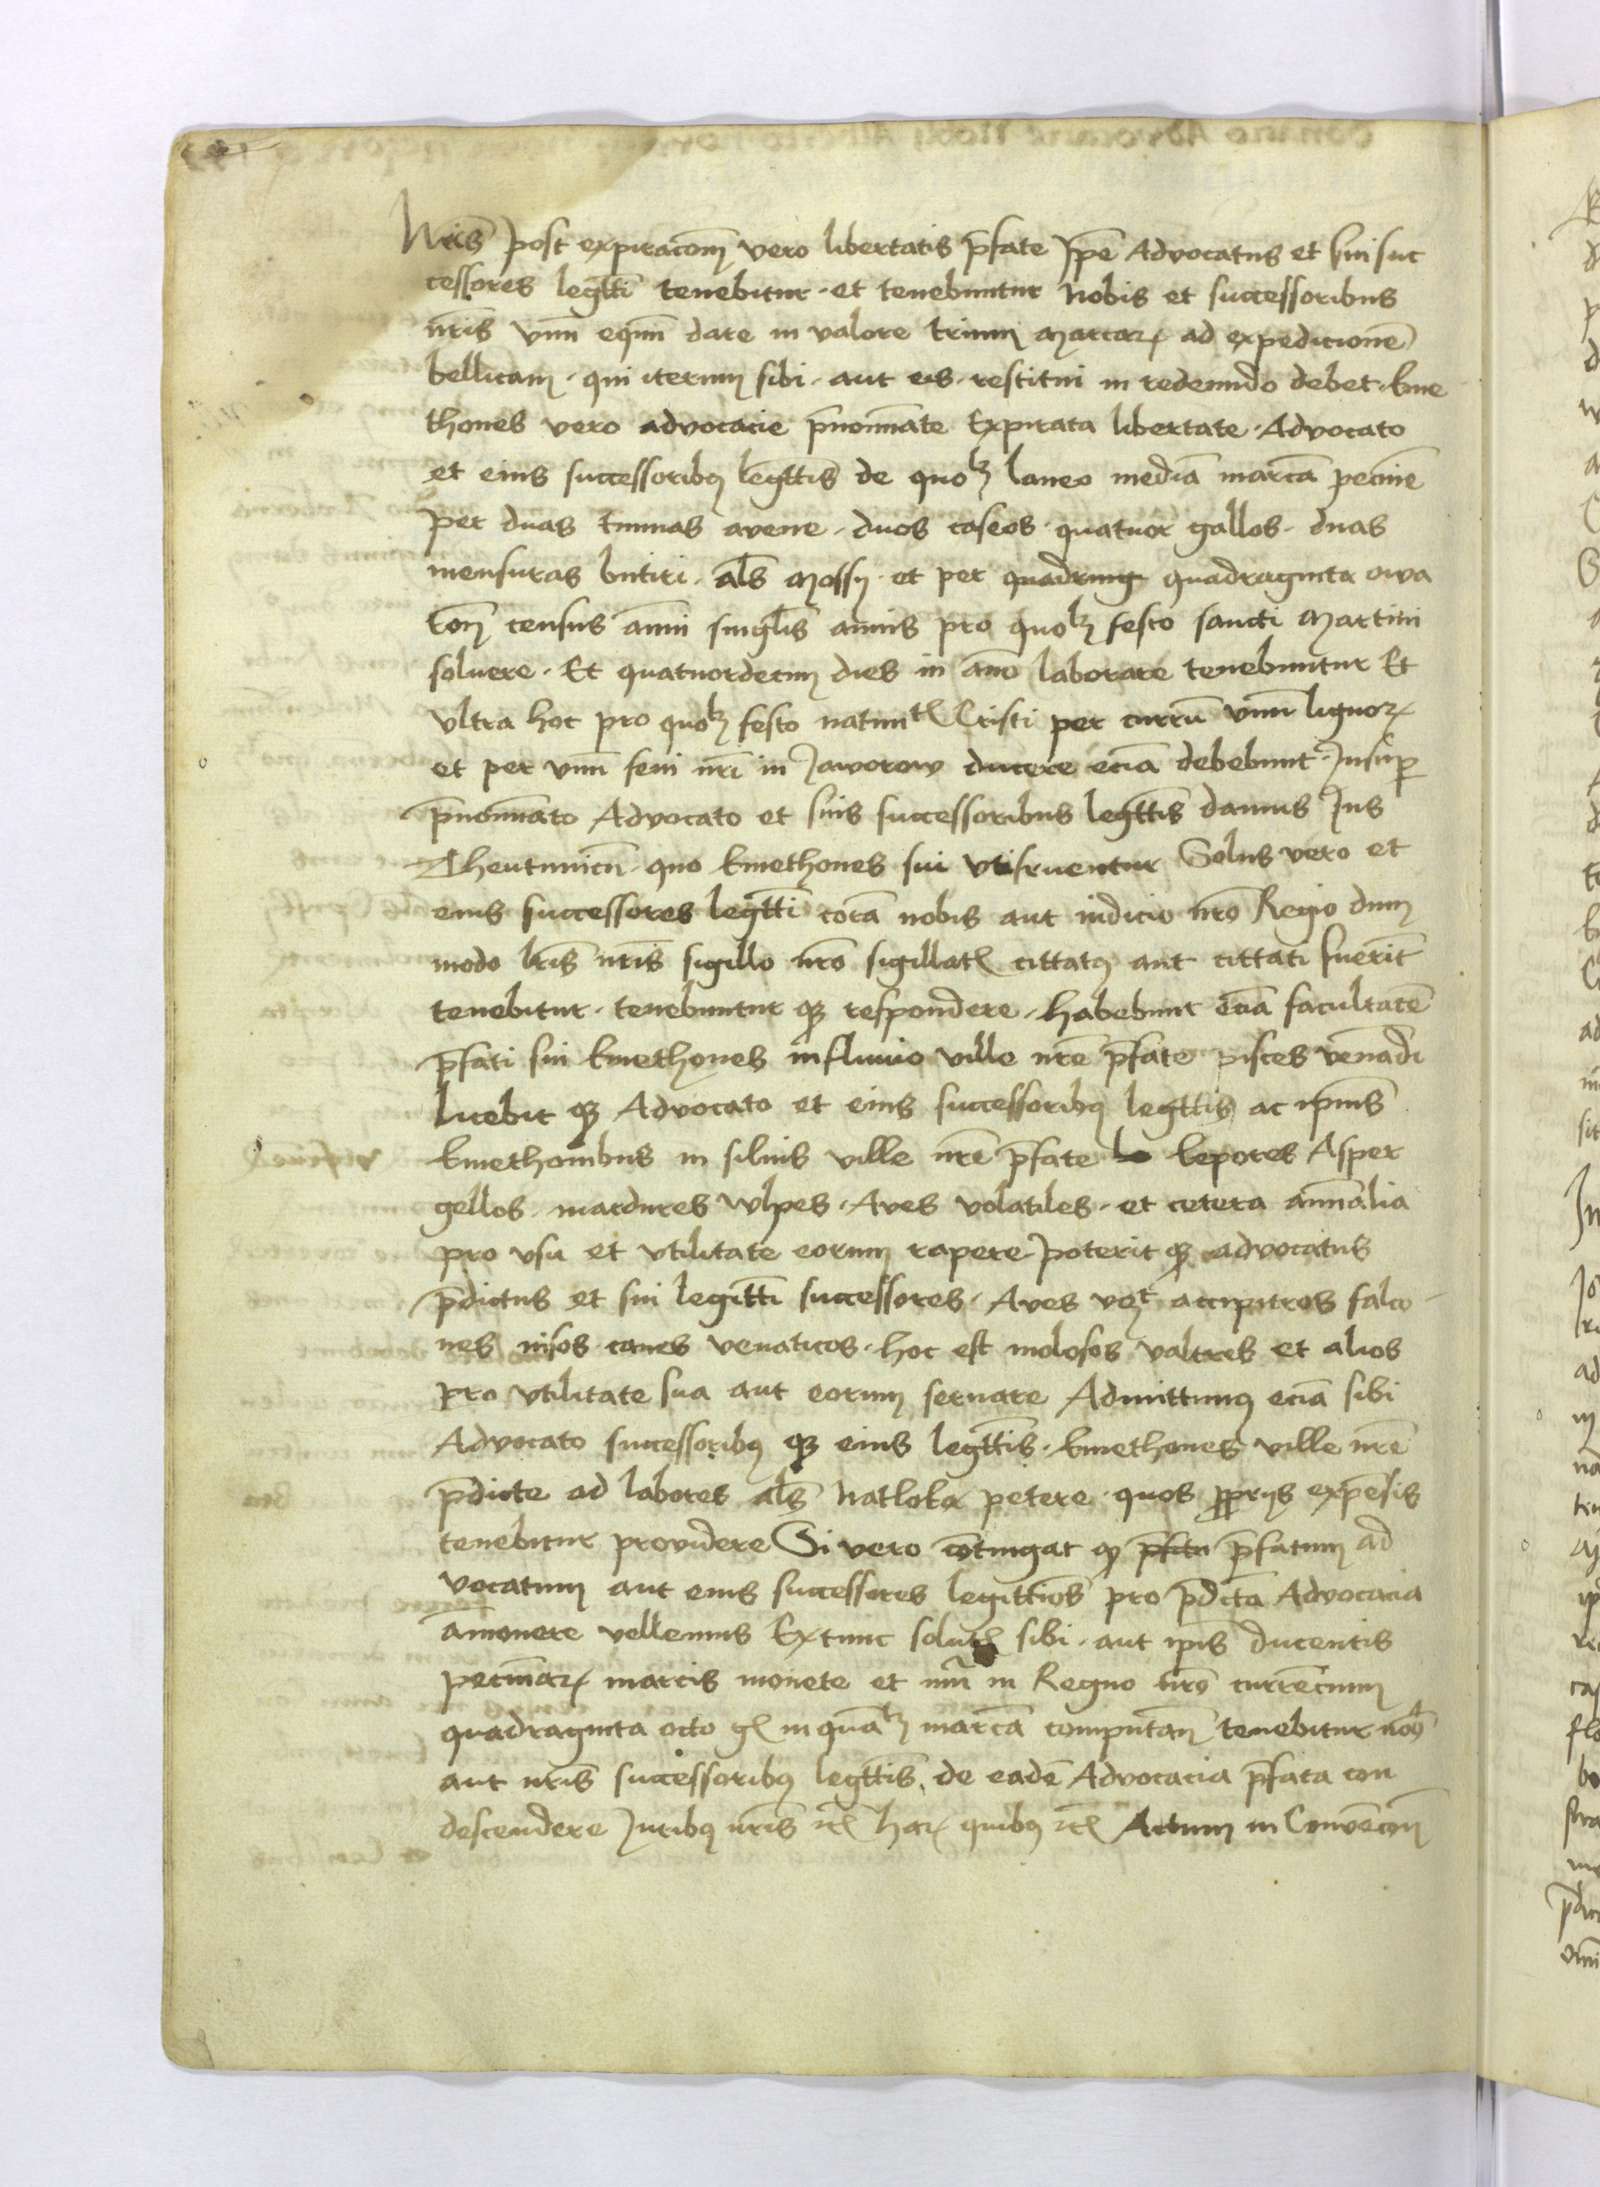 Nris̄ post expiracoēm vero libertatis p̄fate Jpē Advocatus et sui suc
cessores legtt̄i tenebitur · et tenebuntur nobis et successoribus
nr̄is vnū equū dare in valore trium marcarꝝ ad expedicionē
bellicam · qui iterum sibi · aut eis · restitui in redeundo debet · kme
thones vero advocacie p̄nomīate Expirata libertate · Advocato
et eius successoribꝰ legttis̄ de quolꝫ laneo mediā marcā pecuīe
per duas tunnas avene · duos caseos · quatuor gallos · duas
mensuras butiri · als̄ massy · et per quadring quadraginta owa
racōe census anni singlīs annis pro quolꝫ festo sancti Martini
soluere · Et quatuordecim dies in āno laborare tenebuntur Et
vltra hoc pro quolꝫ festo natiuitꝭ Cristi per currū vnū lignorꝝ
et per vnū feni nr̄i in Jaworow ducere eciā debebunt · Jnsuꝑ
p̄nomīato Advocato et suis successoribus legttīs damus Jus
Theutunicū · quo kmethones sui vtifruentur Solus vero et
eius successores legttī corā nobis aut iudicio nr̄o Regio dum
modo lrīs nr̄is sigillo nr̄o sigillatꝭ cittatꝰ aut cittati fuerīt
tenebitur · tenebuntur qꝫ respondere · habebunt eciā facultatē
p̄fati sui kmethones influuio ville nr̄e p̄fate pisces venādi
licebit qꝫ Advocato et eius successoribꝰ legttīs ac ipīus
kmethonibus in siluis ville nr̄e p̄fate le lepores Asper
gellos mardures wlpes · Aves volatiles · et cetera animalia
pro vsu et vtilitate eorum rapere poterit qꝫ advocatus
p̄dictus et sui legittī successores · Aves vꝫt accipitres falco
nes nisos canes venaticos · hoc est molosos valtres et alios
pro vtilitate sua aut eorum seruare Admittimꝰ eciā sibi
Advocato successoribꝰ qꝫ eius legttīs · kmethones ville nr̄e
p̄dicte ad labores als̄ natloka petere · quos ꝓprijs expēsis
tenebitur providere Si vero cōtingat qꝫ p̄fctu p̄fatum ad
vocatum aut eius successores legittīos pro p̄dicta Advocacia
āmouere vellemus Extunc solutꝭ sibi · aut ipīs ducentis
pecuīarꝝ marcis monete et nūi in Regno nr̄o currēcium
quadraginta octo gꝭ in quālꝫ marcā computan̄ tenebitur nob̄
aut nr̄is successoribꝰ legttīs de eadē Advocacia p̄fata con
descendere Juribꝰ nr̄is etꝭ harꝝ quibꝰ etꝭ Actum in Conuēcōe